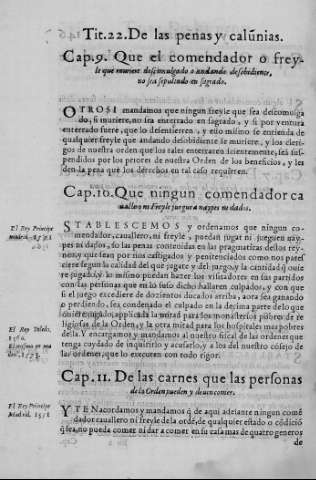 Tit.22. De las penas y calũnias.
Cap.9. Que el comendador o frey-
le que muriere descomulgado o andando desobediente,
no sea sepultado en sagrado.
OTROSI mandamos que ningun freyle que sea descomulga
do, si muriere, no sea enterrado en sagrado, y si por ventura
enterrado fuere, que lo desentierren, y esto mismo se entienda de
qualquier freyle que andando desobidiente se muriere, y los cleri-
gos de nuestra orden que los tales enterraren scientemente, seã sus-
pendidos por los priores de nuestra Orden de los beneficios, y les
den la pena que los derechos en tal caso requieren.
Cap.10. Que ningun comendador ca
uallero ni Freyle juegue a naypes ni dados.
El Rey Principe
Madrid. 1551
STABLESCEMOS y ordenamos que ningun co-
mendador, cauallero, ni freyle, puedan jugar ni jueguen nay-
pes ni dados, so las penas contenidas en las pragmaticas destos rey-
nos, y que sean por nos castigados y penitenciados como nos pares
ciere segun la calidad del que jugare y del juego, y la cantidad q̃ ouie
re jugado, y lo mismo puedan hazer los visitadores en sus partidos
con las personas que en lo suso dicho hallaren culpados, y con que
si el juego excediere de dozientos ducados arriba, aora sea ganando
o perdiendo, sea condenado el culpado en la decima parte de lo que
El Rey Toledo.
1560.
ouiere jugado, applicada la mitad para los monasterios pobres de re
ligiosas de la Orden, y la otra mitad para los hospitales mas pobres
della. Y encargamos y mandamos al nuestro fiscal de las ordenes que
tenga cuydado de inquirirlo y acusarlo, y a los del nuestro cõsejo de
las ordenes, que lo executen con todo rigor.
Cap.11. De las carnes que las personas
de la Orden pueden y deuen comer.
El Rey Principe
Madrid. 1551
YTEN acordamos y mandamos q̃ de aqui adelante ningun comẽ
dador cauallero ni freyle de la ordẽ, de qualquier estado o cõdiciõ
q̃ sea, no pueda comer ni dar a comer en su casa mas de quatro generos
de